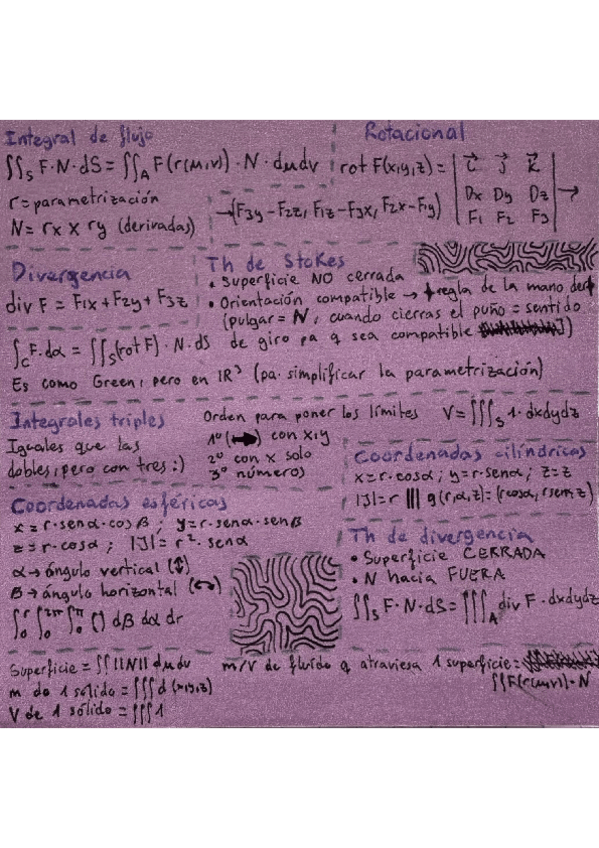 Integral de flujo
∬_S F·N·dS = ∬_A F(r(u,v))·N·dudv
r = parametrización
N = rx × ry (derivadas)
Rotacional
rot F(x,y,z) = | i⃗ j⃗ k⃗ |
| Dx Dy Dz | →
| F1 F2 F3 |
→ (F3y - F2z, F1z - F3x, F2x - F1y)
Divergencia
div F = F1x + F2y + F3z
Th de Stokes
• Superficie NO cerrada
• Orientación compatible → regla de la mano der
(pulgar = N, cuando cierras el puño = sentido
de giro pa q sea compatible)
∫_C F·dα = ∬_S (rot F)·N·dS
Es como Green, pero en IR³ (pa simplificar la parametrización)
Integrales triples
Iguales que las
dobles, pero con tres :)
Orden para poner los límites
1º (➡) con x,y
2º con x solo
3º números)
V = ∭_S 1·dxdydz
Coordenadas cilíndricas
x = r·cosα ; y = r·senα ; z = z
|J| = r ||| g(r,α,z) = (rcosα, rsenα, z)
Coordenadas esféricas
x = r·senα·cosβ ; y = r·senα·senβ
z = r·cosα ; |J| = r²·senα
α → ángulo vertical (↕)
β → ángulo horizontal (↔)
∫₀^r ∫₀^2π ∫₀^π () dβ dα dr
Th de divergencia
• Superficie CERRADA
• N hacia FUERA
∬_S F·N·dS = ∭_A div F·dxdydz
Superficie = ∬ ||N|| dudv
m de 1 sólido = ∭ d(x,y,z)
V de 1 sólido = ∭ 1
m/V de fluido q atraviesa 1 superficie =
∬ F(r(u,v))·N